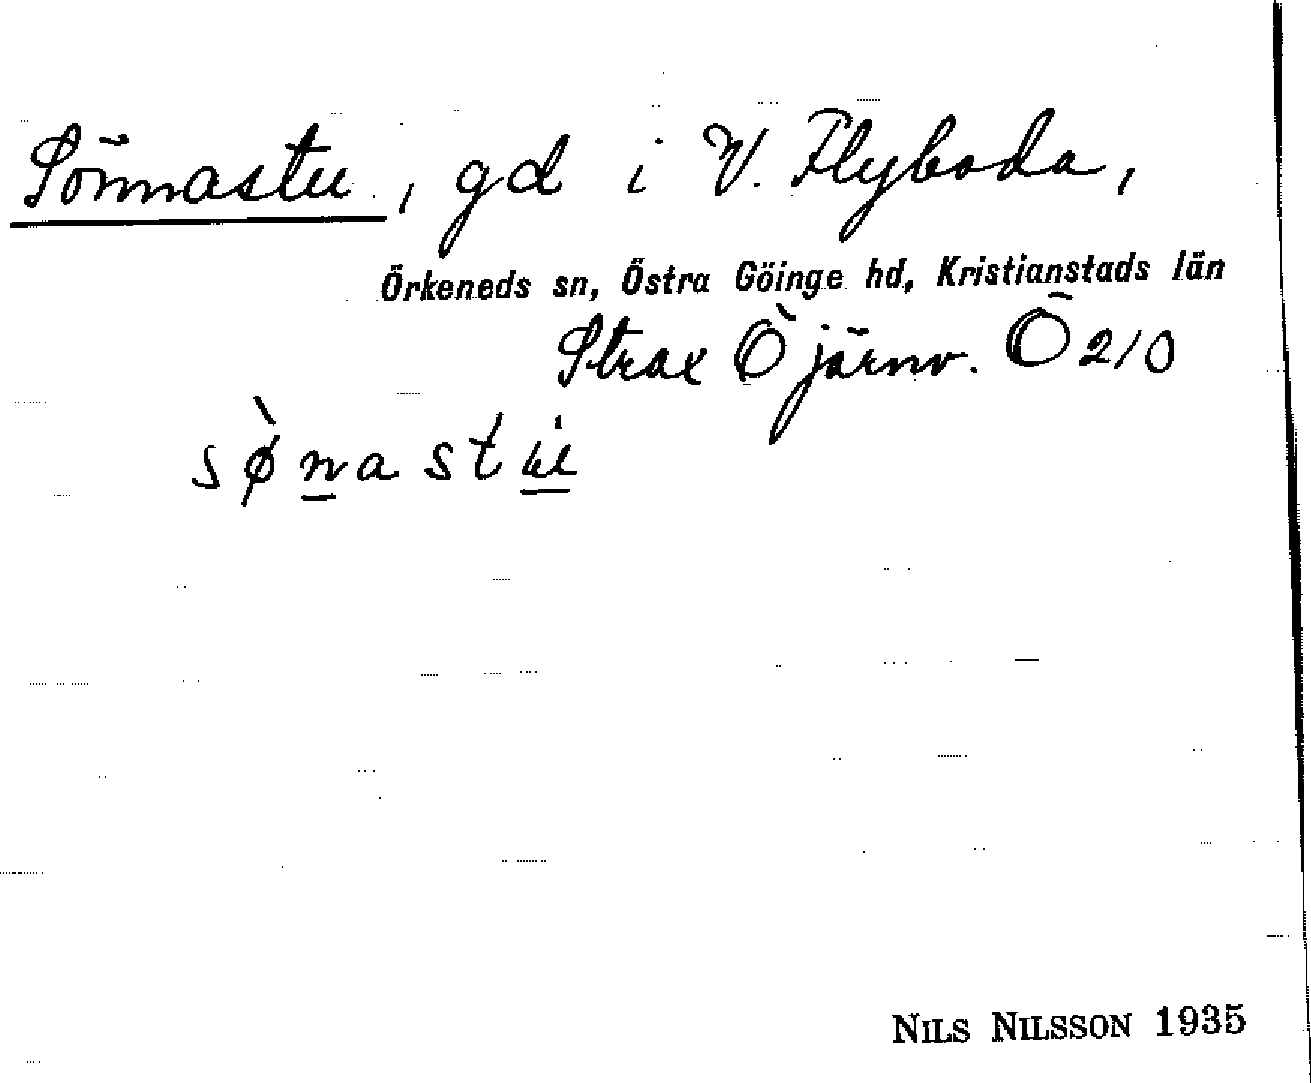 Sönnastu, gd i V. Flyboda,
Örkeneds sn, Östra Göinge hd, Kristianstads län
Strax Ö järnv. Ö 210
sø̀nastu̇
NILS NILSSON 1935